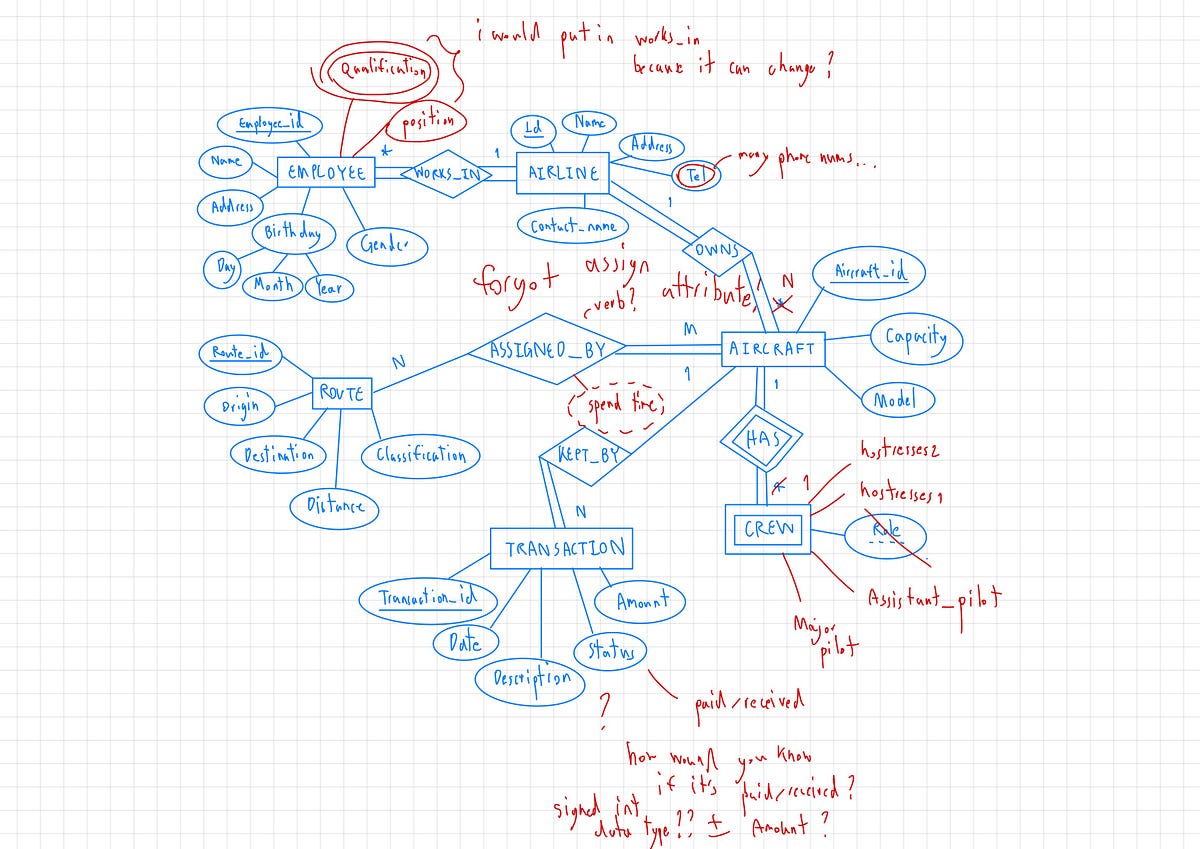 i would put in works_in
because it can change?
Qualification
position
Employee_id
Name
Address
Birthday
Day
Month
Year
Gender
EMPLOYEE
*
WORKS_IN
1
AIRLINE
Id
Name
Address
Tel
many phone nums...
Contact_name
1
OWNS
N
*
forgot assign attribute!
verb?
Aircraft_id
Capacity
Model
AIRCRAFT
M
ASSIGNED_BY
N
spend time
Route_id
Origin
Destination
Distance
Classification
ROUTE
1
KEPT_BY
N
1
HAS
*
1
CREW
hostresses2
hostresses1
Role
Assistant_pilot
Major
pilot
TRANSACTION
Transaction_id
Date
Description
Status
Amount
paid/received
?
how would you know
if it's paid/received?
signed int
data type?? ± Amount?